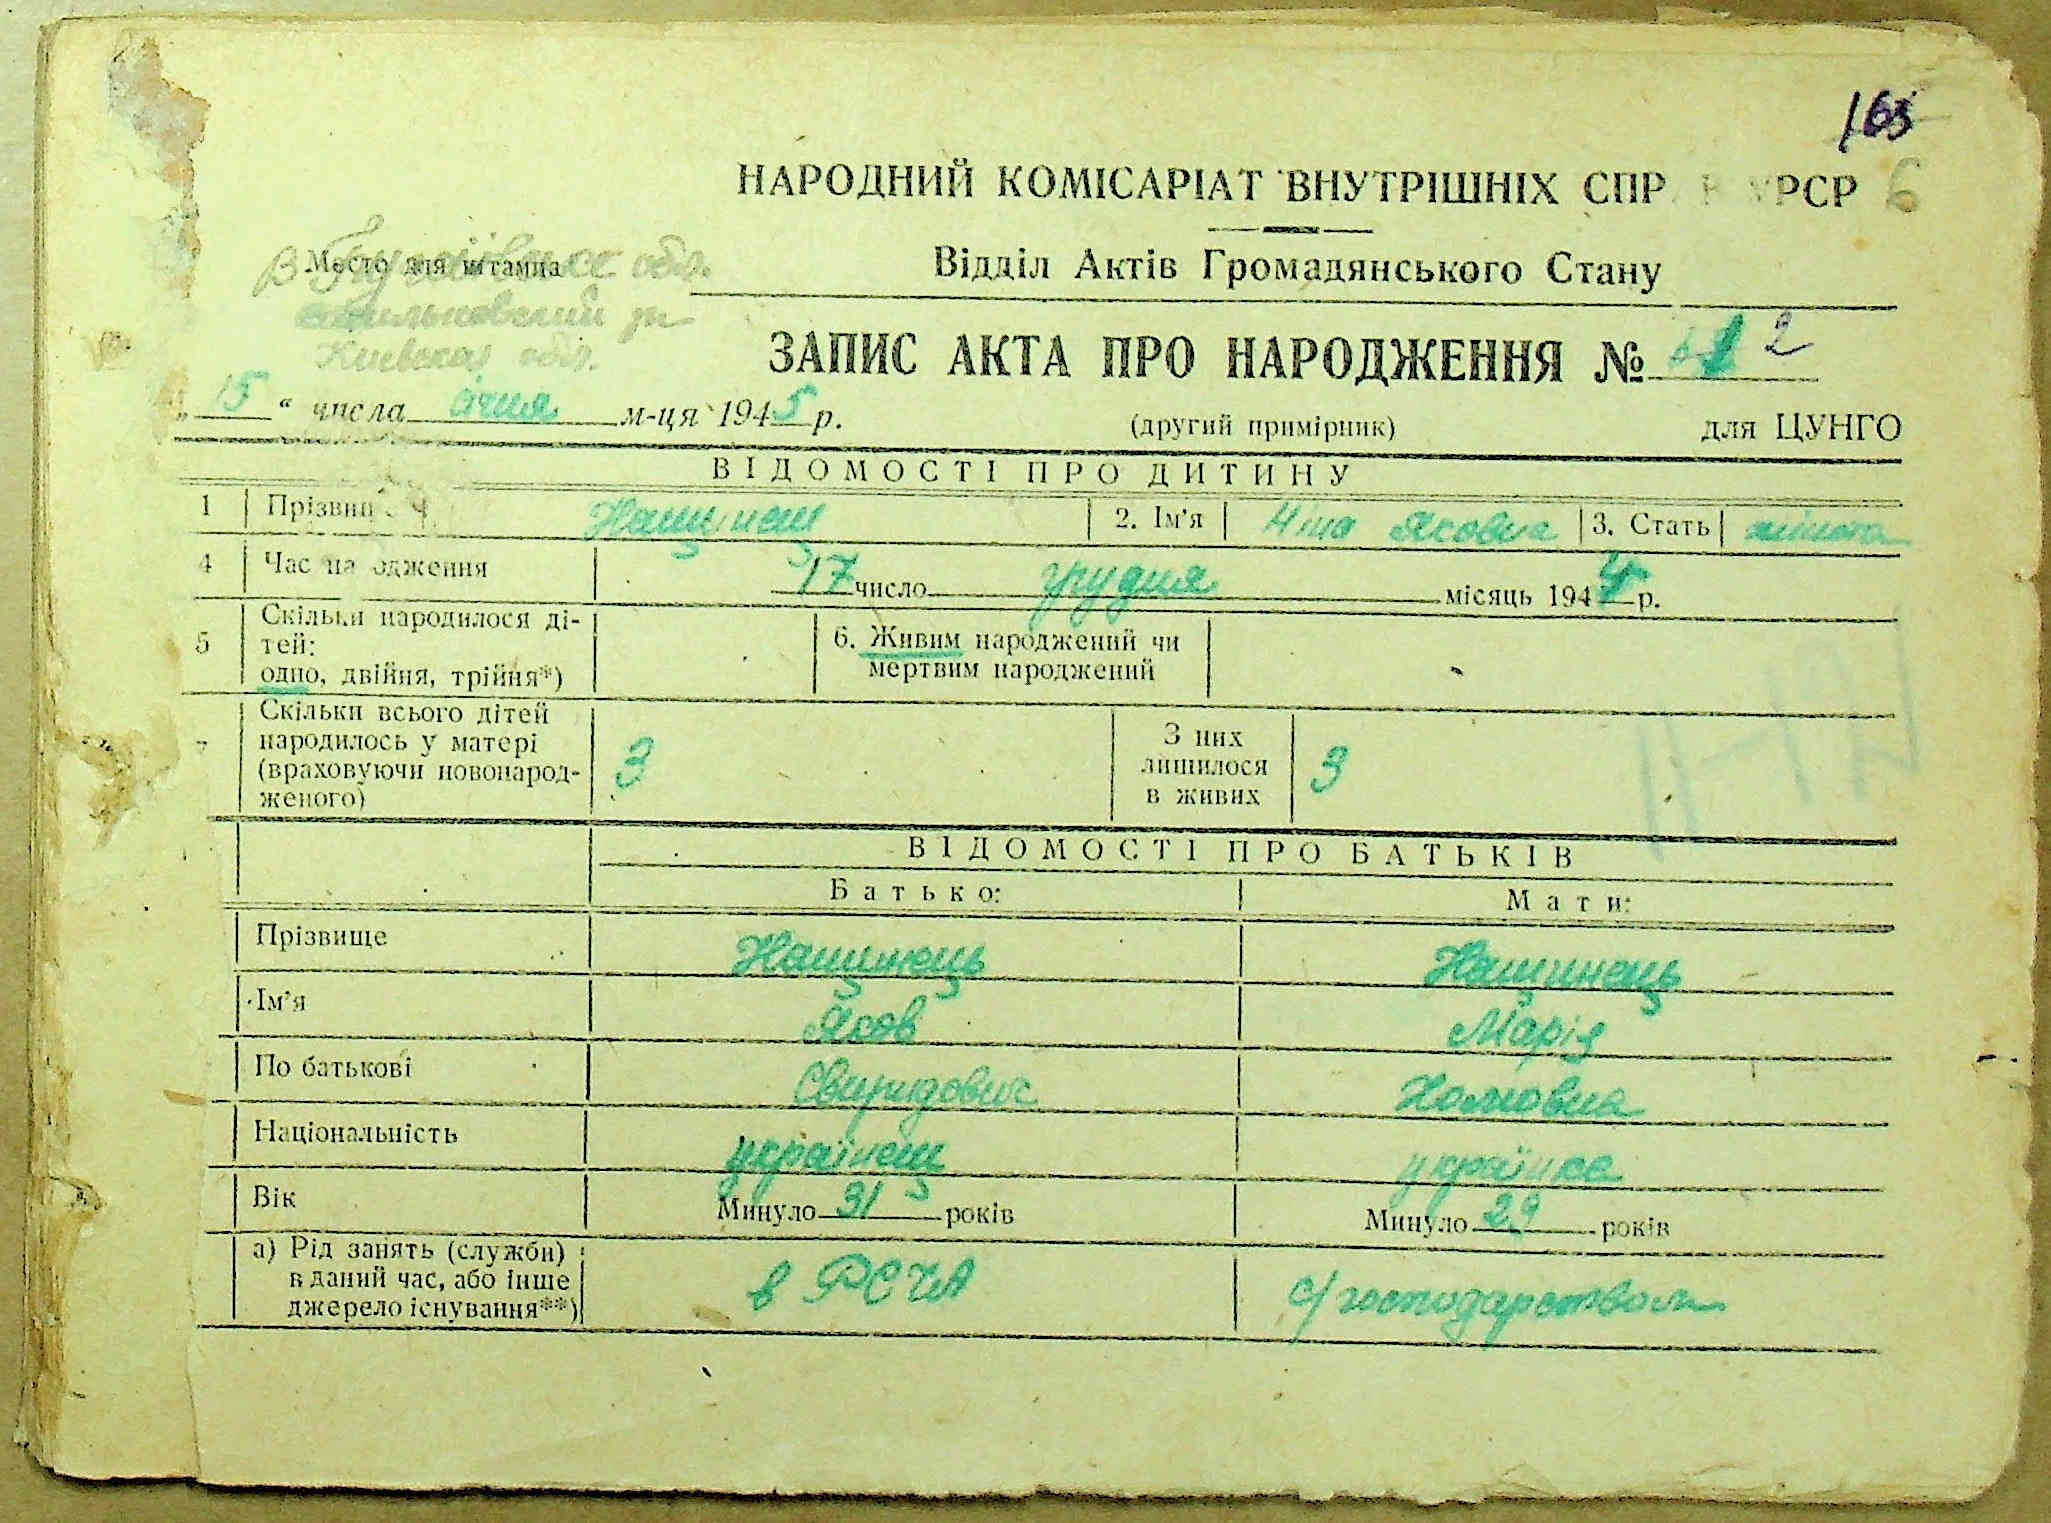 163
НАРОДНИЙ КОМІСАРІАТ ВНУТРІШНІХ СПР В УРСР 6
Место для штампа
обл.
Відділ Актів Громадянського Стану
васильковский рн
Киевская обл.
ЗАПИС АКТА ПРО НАРОДЖЕННЯ № 2
„ 15 “ числа січня м-ця 1945 р.
(другий примірник) для ЦУНГО
ВІДОМОСТІ ПРО ДИТИНУ
1 Прізвище Нащинец 2. Ім'я Ніна Яковна 3. Стать жіноча
4 Час народження 17 число грудня місяць 1944 р.
5 Скільки народилося ді-
тей:
одно, двійня, трійня*)
6. Живим народжений чи
мертвим народжений
7 Скільки всього дітей
народилось у матері
(враховуючи новонарод-
женого)
3
З них
лишилося
в живих
3
ВІДОМОСТІ ПРО БАТЬКІВ
Батько: Мати:
Прізвище Нащинець Нащинець
Ім'я Яков Марія
По батькові Свиридович Хомовна
Національність українец українка
Вік Минуло 31 років Минуло 29 років
а) Рід занять (служби)
в даний час, або інше
джерело існування**)
в РСЧА с/господарством